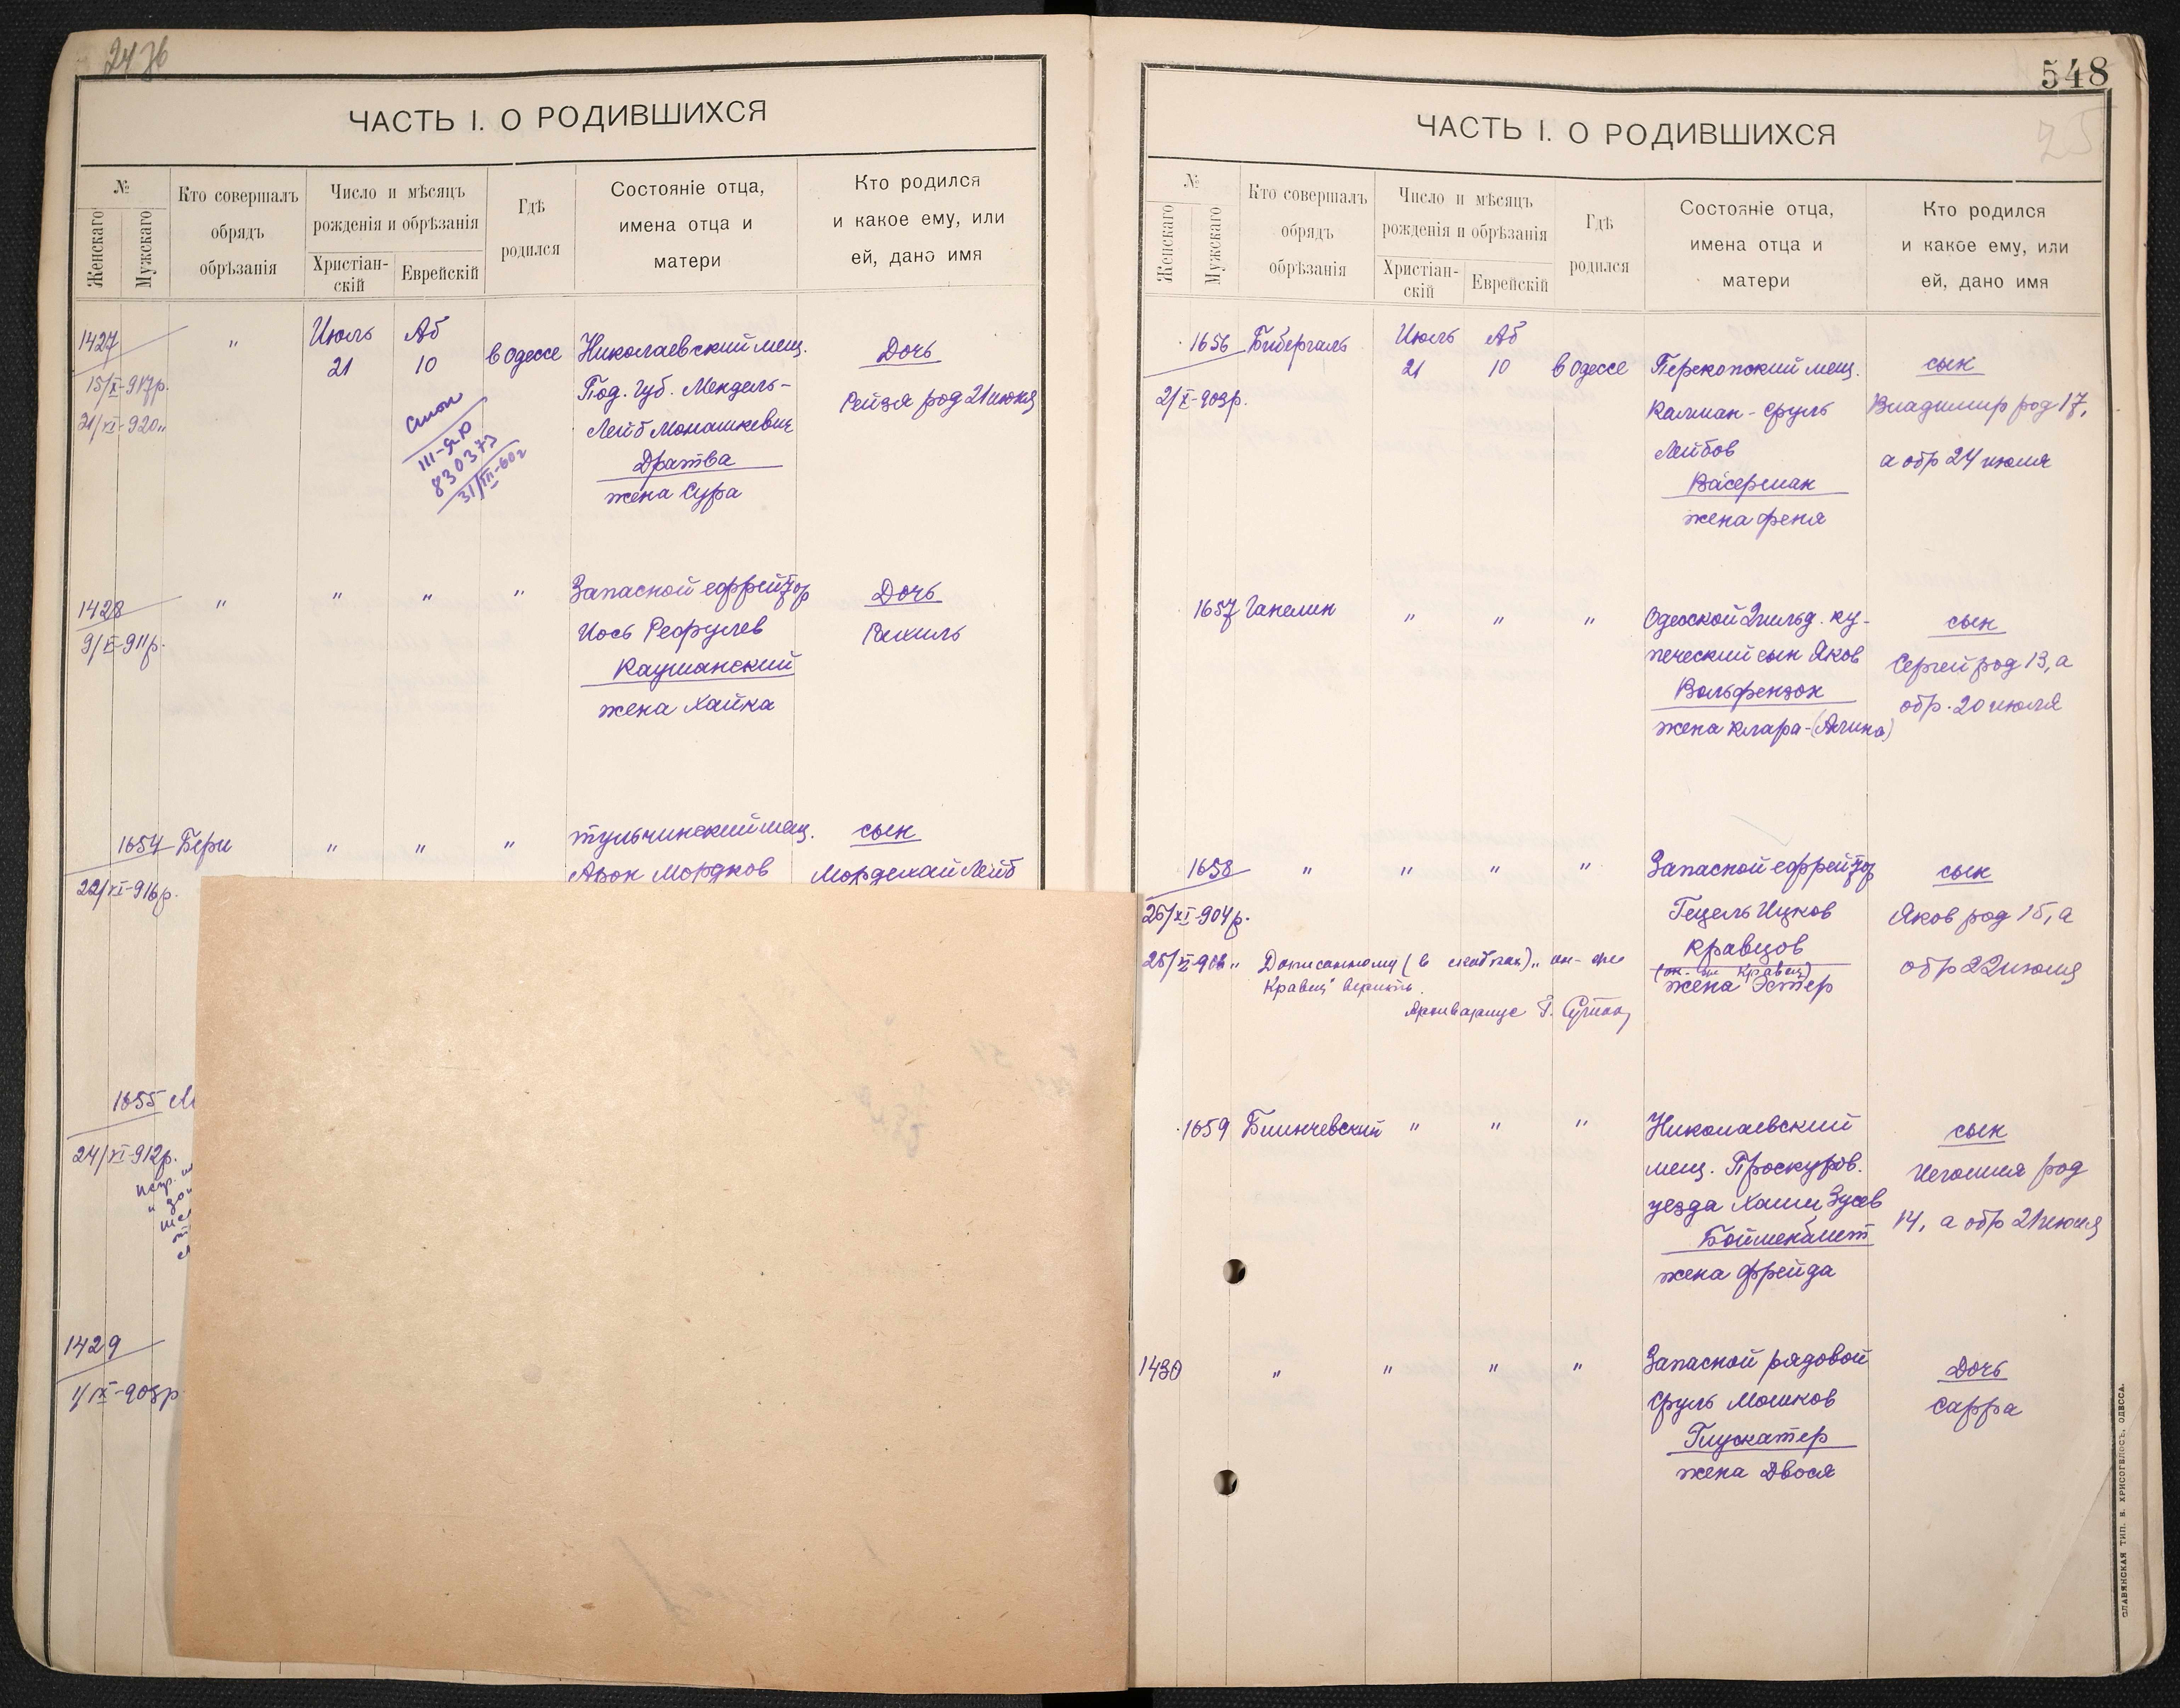 2436
ЧАСТЬ I. О РОДИВШИХСЯ
№
Женскаго
Мужскаго
Кто совершалъ
обрядъ
обрѣзанія
Число и мѣсяцъ
рожденія и обрѣзанія
Христіан-
скій
Еврейскій
Гдѣ
родился
Состояніе отца,
имена отца и
матери
Кто родился
и какое ему, или
ей, дано имя
1427
15/X-917р.
21/XI-920"
"
Июль
21
Аб
10
в Одессе
Николаевский мещ.
Под. губ. Мендель-
Лейб Монашкевич
Дратва
жена Сура
Дочь
Рейзя род 21 июня
III-ЯЮ
830373
31/III-60г
1428
9/X-911р.
" " " "
Запасной ефрейтор
Иось Рефулев
Каушанский
жена Хайка
Дочь
Рихиль
1654
22/XI-916р.
Бери
" " "
тульчинский мещ.
Арон Мордков
сын
Мордехай Лейб
1655
24/XI-912р.
1429
1/IX-903р.
548
25
ЧАСТЬ I. О РОДИВШИХСЯ
№
Женскаго
Мужскаго
Кто совершалъ
обрядъ
обрѣзанія
Число и мѣсяцъ
рожденія и обрѣзанія
Христіан-
скій
Еврейскій
Гдѣ
родился
Состояніе отца,
имена отца и
матери
Кто родился
и какое ему, или
ей, дано имя
1656
21/X-903р.
Бибергаль
Июль
21
Аб
10
в Одессе
Перекопский мещ.
Калман-Сруль
Лейбов
Васерман
жена Феня
сын
Владимир род 17,
а обр 24 июля
1657
Ганелин
" " "
Одесской 2 гильд. ку-
печеский сын Яков
Вольфензон
жена Клара-(Алина)
сын
Сергей род 13, а
обр. 20 июля
1658
26/XI-904р.
" " " "
Запасной ефрейтор
Гецель Ицков
Кравцов
(он-же Кравец)
жена Эстер
сын
Яков род 15, а
обр 22 июля
Дописанному (в скобках) "он-же
Кравец" верить.
Архивариус Г.
1659
Блинчевский
" " "
Николаевский
мещ. Проскуров.
уезда Хаим Зусев
Бойменблит
жена Фрейда
сын
Иегошия род
14, а обр 21 июля
1430
" " " "
Запасной рядовой
Сруль Мошков
Глускатер
жена Двося
Дочь
Сарра
СЛАВЯНСКАЯ ТИП. Н. ХРИСОГЕЛОСЪ, ОДЕССА.